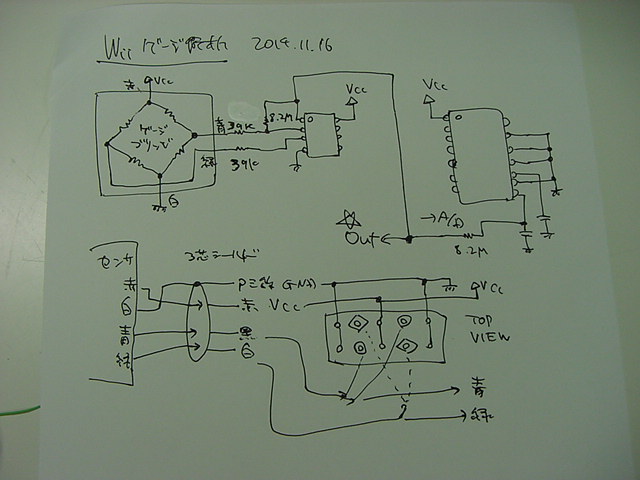 Wii ゲージ 2014.11.16
赤 Vcc
ゲージ
ブリッジ
青 39K
8.2M
緑 39K
白
Vcc
Vcc
→A/D
Out
8.2M
センサ
赤
白
青
緑
3芯シールド
(GND)
赤 Vcc
黒
白
Vcc
TOP
VIEW
青
緑